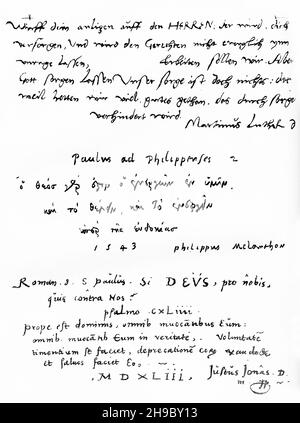 Wirff dein anligen auff den HERRN. der wird dich
versorgen, Und wird den Gerechten nicht ewiglich ynn
unruge lassen, Erbeiten sollen wir. Aber
Gott sorgen lassen Unser sorge ist doch nichts. das
weil hetten wir viel guts gethan, das durch sorge
verhindert wird
Martinus Luther D
Paulus ad Philippenses 2
ὁ θεός γάρ ἐστιν ὁ ἐνεργῶν ἐν ὑμῖν
καὶ τὸ θέλειν, καὶ τὸ ἐνεργεῖν
ὑπὲρ τῆς εὐδοκίας
1543 philippus Melanthon
Roman. 8. S paulus. Si DEVS, pro nobis,
quis contra Nos?
psalmo CXLIIII.
prope est dominus, omnib invocantibus Eum:
omnib. invocantib Eum in veritate. Voluntatē
timentium se faciet, deprecationē eorum exaudiet
et salvos faciet Eos.
MDXLIII. Justus Jonas. D.
alamy
Image ID: 2H9BY13
www.alamy.com